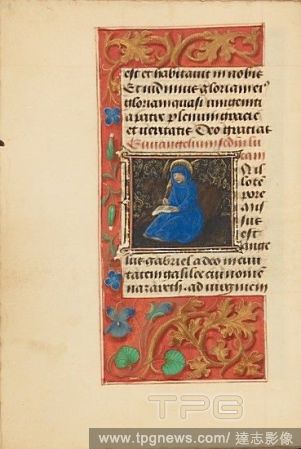 est et habitauit in nobis
Et uidimus gloriam ei9
gloriam quasi unigeniti
a patre plenum gracie
et ueritatis Deo gracias
Euuangelium secundum lu
cam
N il
lo te
pore
an
sus
est
ange
lus gabriel a deo in ciui
tatem galilee cui nomen
nazareth . ad uirginem
TPG
www.tpgnews.com/ 達志影像